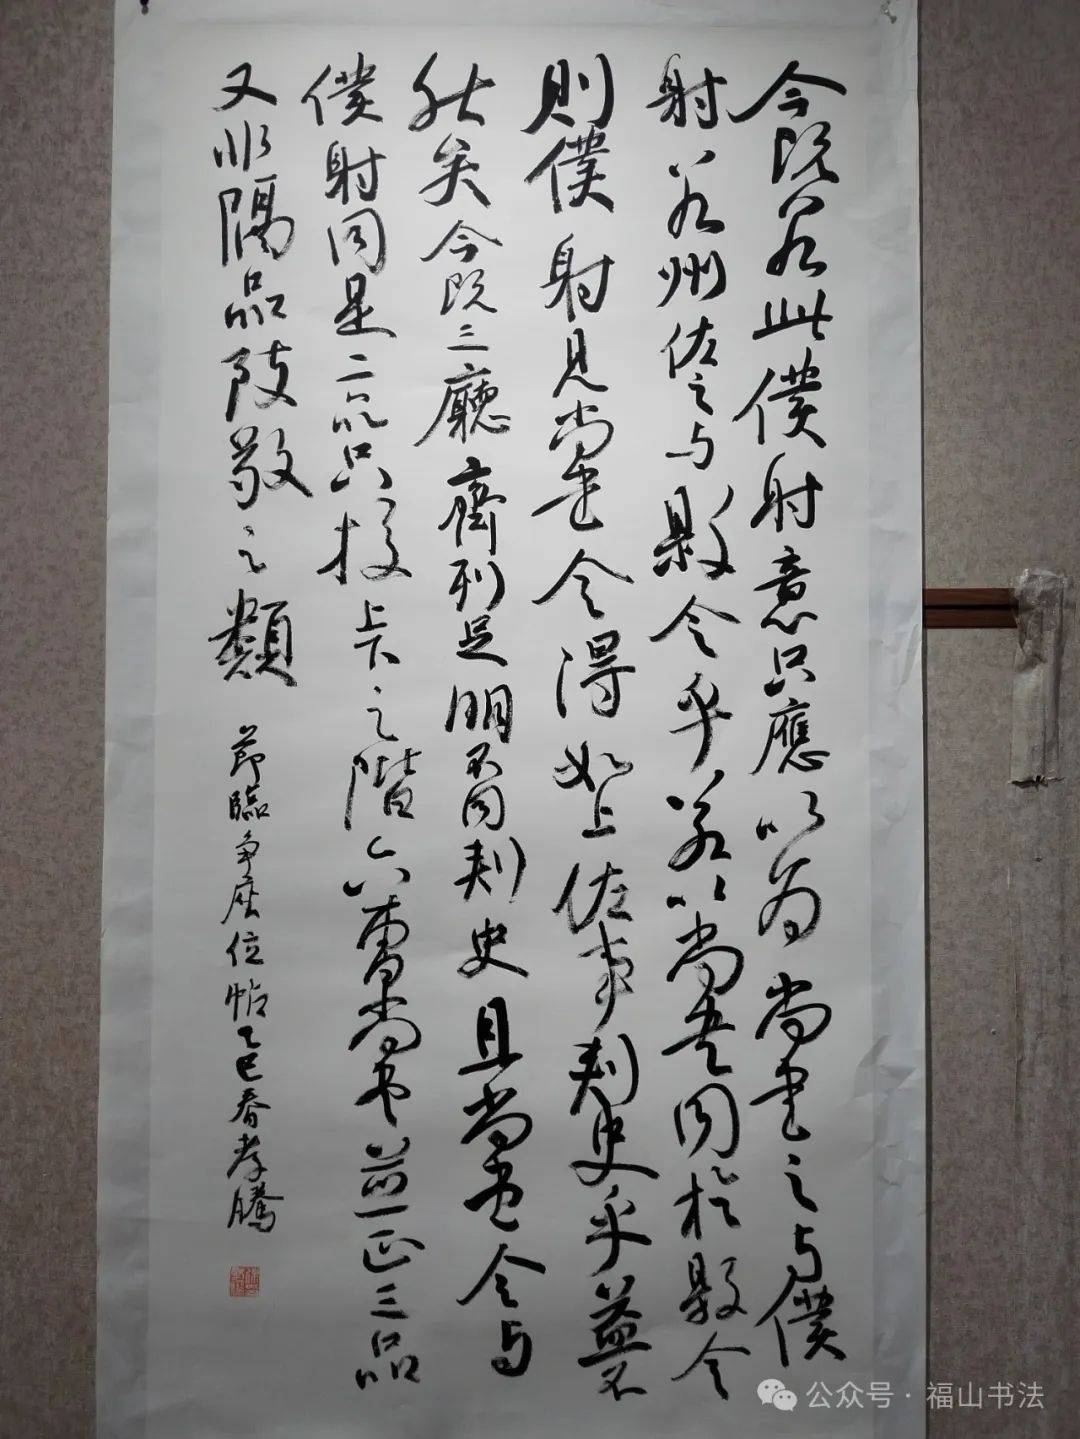 今既若此僕射意只應以為尚書之与僕
射若州佐之与縣令乎若以尚書同於縣令
則僕射見尚書令得如上佐事刺史乎益不
然矣今既三廳齊列足明不同刺史且尚書令与
僕射同是二品只校上下之階六曹尚書並正三品
又非隔品致敬之類
節臨争座位帖乙巳春孝騰
公众号·福山书法